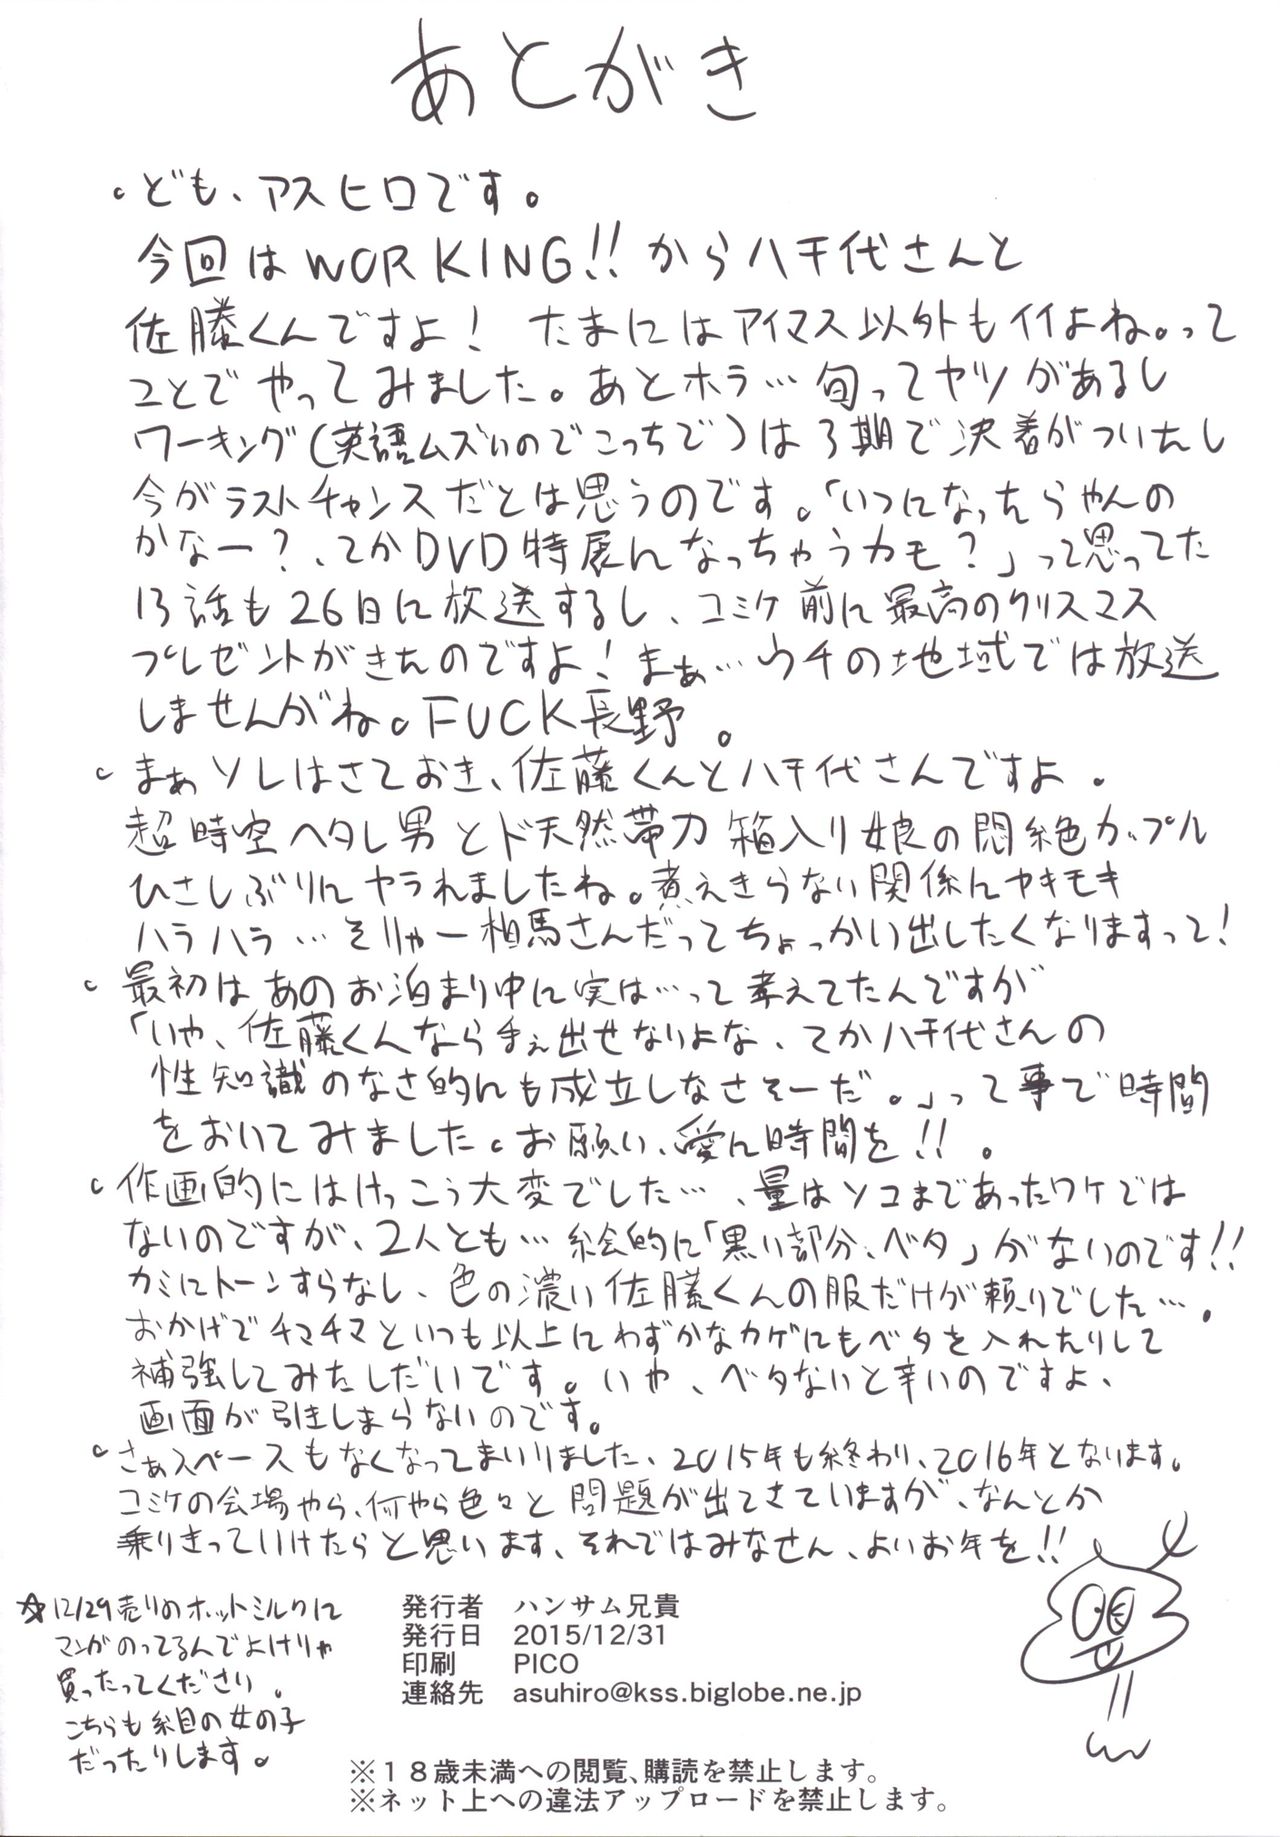 あとがき
。ども、アスヒロです。
今回はWORKING!!から八千代さんと
佐藤くんですよ！ たまにはアイマス以外もイイよね。って
ことでやってみました。あとホラ…旬ってヤツがあるし
ワーキング(英語ムズいのでこっちで)は3期で決着がついたし
今がラストチャンスだとは思うのです。「いつになったらやんの
かなー？、てかDVD特展になっちゃうカモ？」って思ってた
13話も26日に放送するし、コミケ前に最高のクリスマス
プレゼントがきたのですよ！まぁ…ウチの地域では放送
しませんがね。FUCK長野。
。まぁソレはさておき、佐藤くんと八千代さんですよ。
超時空ヘタレ男とド天然帯刀箱入り娘の悶絶カップル
ひさしぶりにヤラれましたね。煮えきらない関係にヤキモキ
ハラハラ…そりゃー相馬さんだってちょっかい出したくなりますって！
。最初はあのお泊まり中に実は…って考えてたんですが
「いや、佐藤くんなら手ぇ出せないよな、てか八千代さんの
性知識のなさ的にも成立しなさそーだ。」って事で時間
をおいてみました。お願い、愛に時間を!!。
。作画的にはけっこう大変でした…、量はソコまであったワケでは
ないのですが、2人とも…絵的に「黒い部分、ベタ」がないのです!!
カミにトーンすらなし、色の濃い佐藤くんの服だけが頼りでした…。
おかげでチマチマといつも以上にわずかなカゲにもベタを入れたりして
補強してみたしだいです。いや、ベタないと辛いのですよ、
画面が引きしまらないのです。
。さぁスペースもなくなってまいりました、2015年も終わり、2016年となります。
コミケの会場やら、何やら色々と問題が出てきていますが、なんとか
乗りきっていけたらと思います、それではみなせん、よいお年を!!
☆12/29売りのホットミルクに
マンがのってるんでよけりゃ
買ったってください。
こちらも糸目の女の子
だったりします。
発行者 ハンサム兄貴
発行日 2015/12/31
印刷 PICO
連絡先 asuhiro@kss.biglobe.ne.jp
※１８歳未満への閲覧、購読を禁止します。
※ネット上への違法アップロードを禁止します。